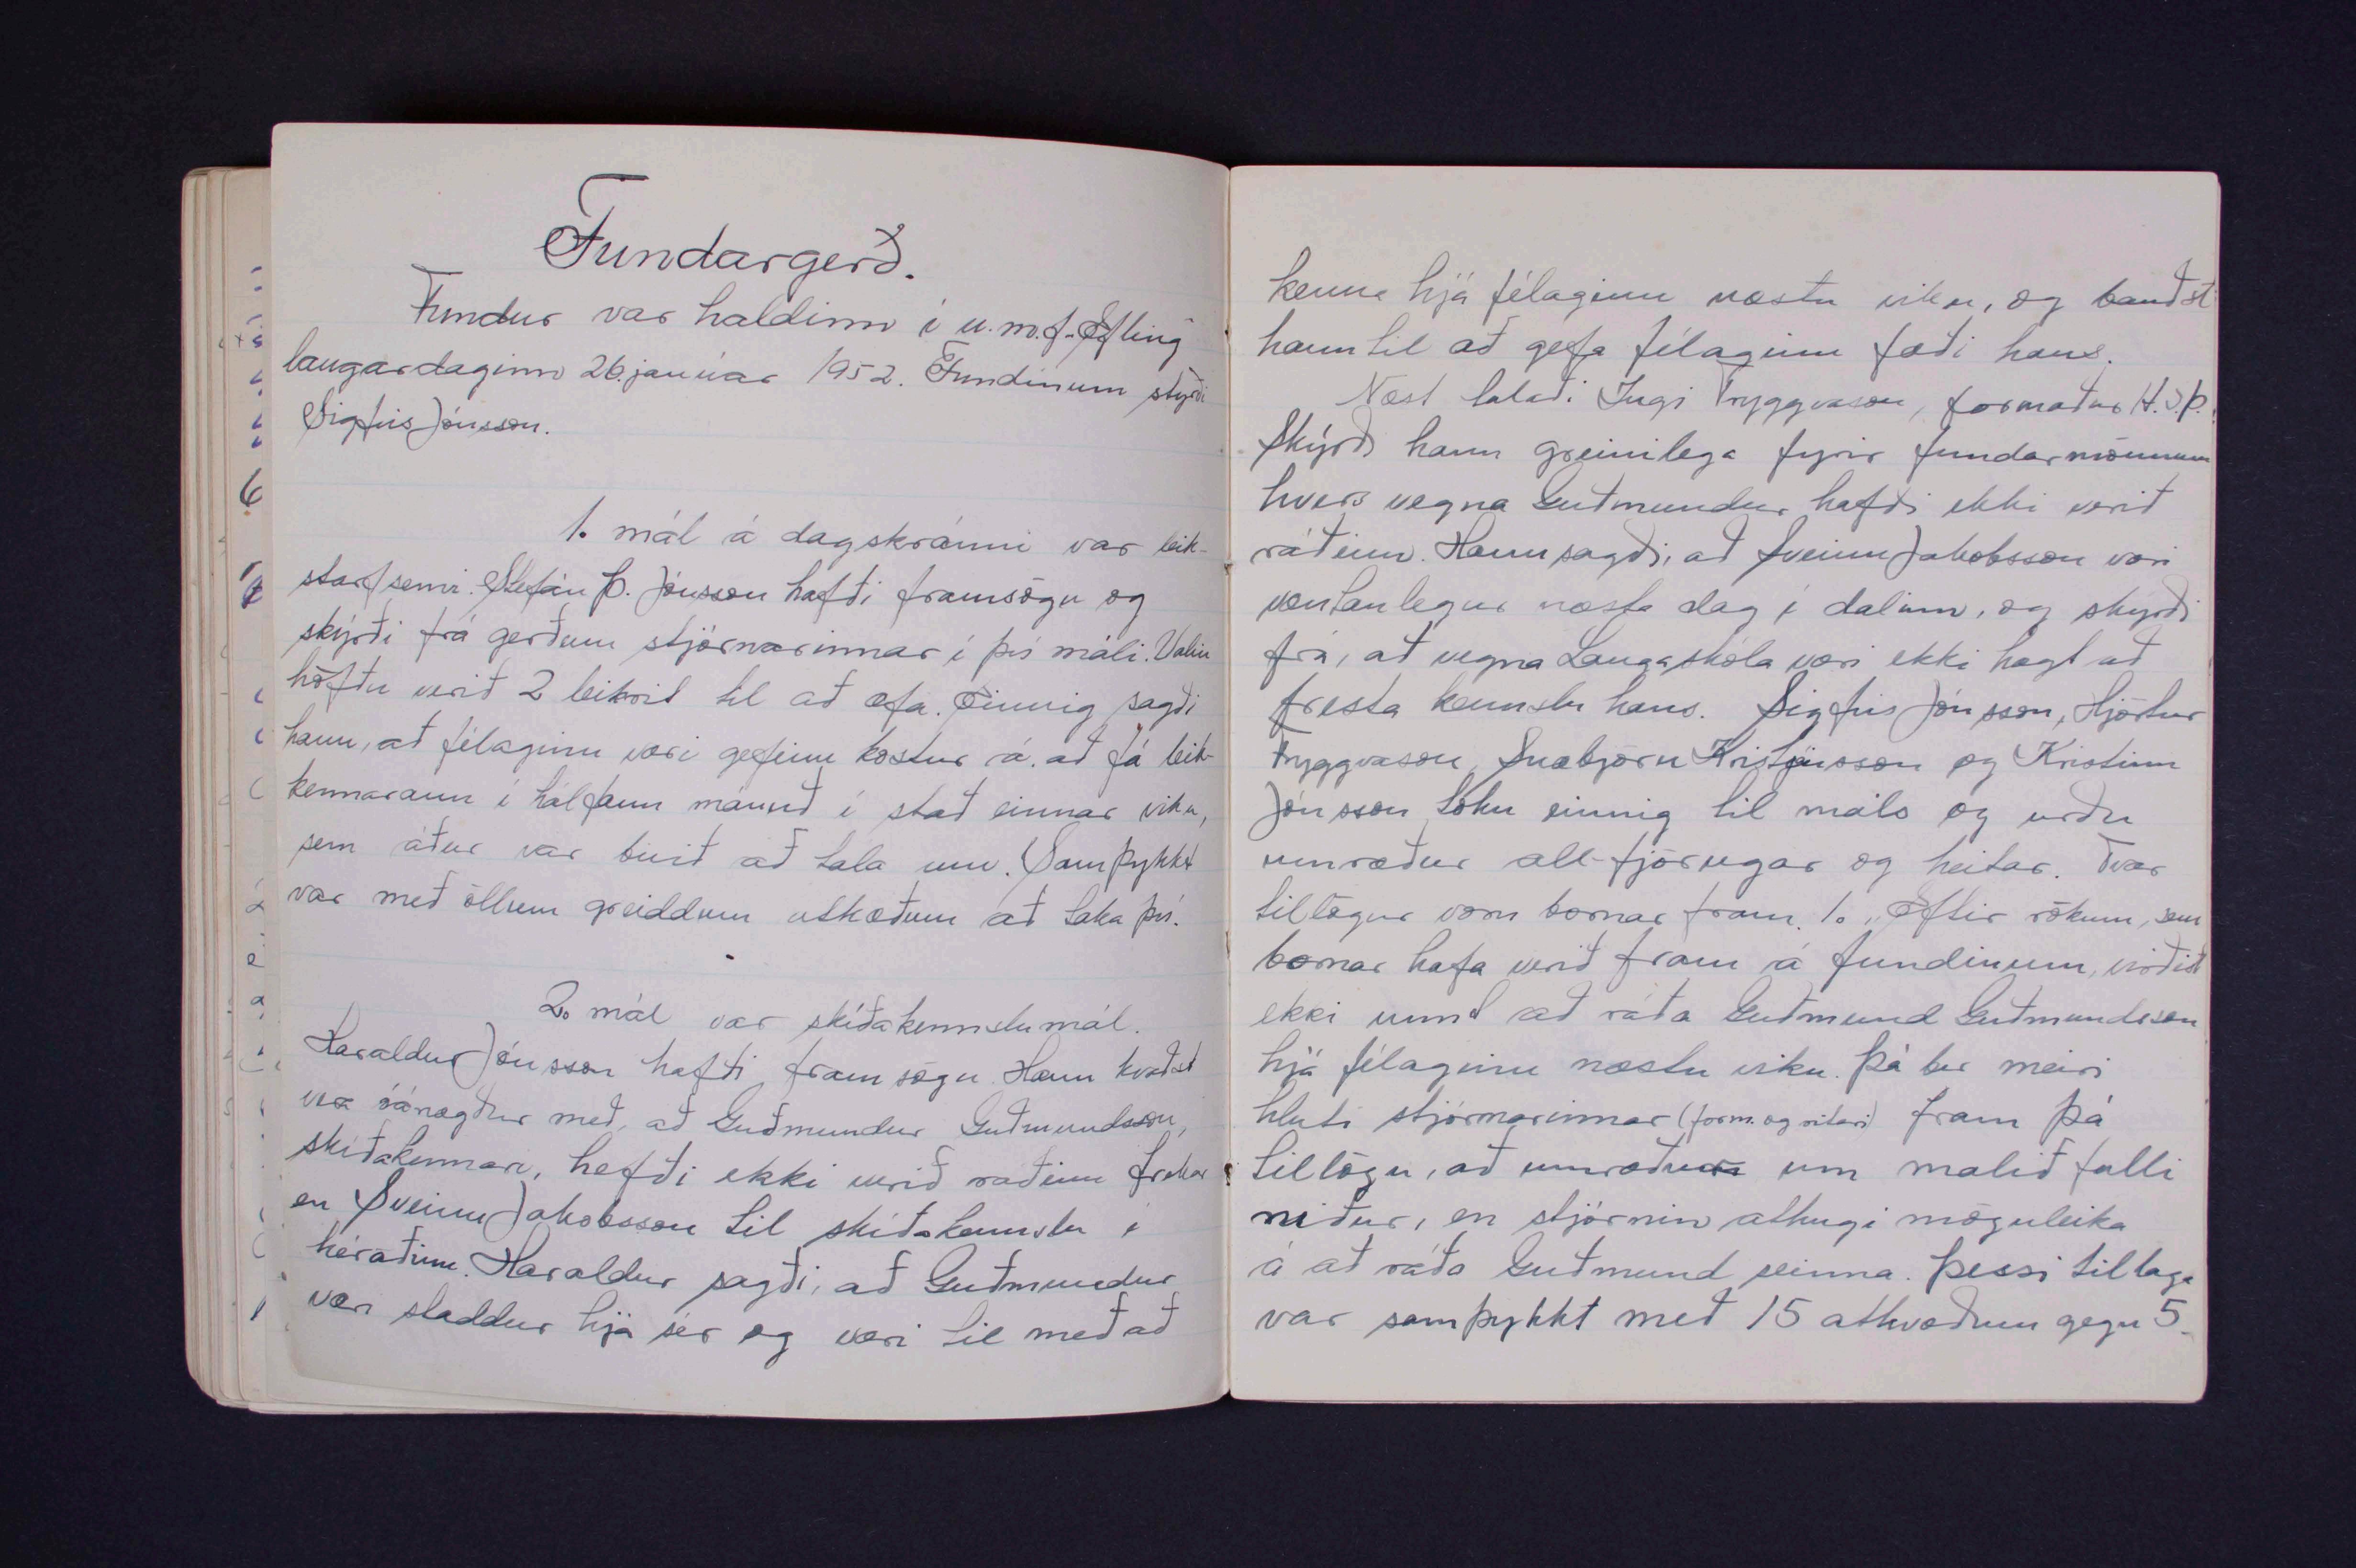 Fundargerð.
Fundur var haldinn í u.m.f. Efling
laugardaginn 26. janúar 1952. Fundinum stýrði
Sigfús Jónsson.
1. mál á dagskránni var leik-
starfsemi. Stefán Þ. Jónsson hafði framsögu og
skýrði frá gerðum stjórnarinnar í því máli. Valin
höfðu verið 2 leikrit til að æfa. Einnig sagði
hann, að félaginu væri gefinn kostur á, að fá leik-
kennarann í hálfann mánuð í stað einnar viku,
sem áður var búið að tala um. Samþykkt
var með öllum greiddum atkvæðum að taka því.
2. mál var skíðakennslumál.
Haraldur Jónsson hafði framsögu. Hann kvaðst
vera óánægður með, að Guðmundur Guðmundsson,
skíðakennari, hefði ekki verið ráðinn frekar
en Sveinn Jakobsson til skíðakennslu í
héraðinu. Haraldur sagði, að Guðmundur
væri staddur hjá sér og væri til með að
kenna hjá félaginu næstu viku, og bauðst
hann til að gefa félaginu fæði hans.
Næst talaði Ingi Tryggvason, formaður H.S.Þ.
Skýrði hann greinilega fyrir fundarmönnum
hvers vegna Guðmundur hafði ekki verið
ráðinn. Hann sagði, að Sveinn Jakobsson væri
væntanlegur næsta dag í dalinn, og skýrði
frá, að vegna Laugaskóla væri ekki hægt að
fresta kennslu hans. Sigfús Jónsson, Hjörtur
Tryggvason, Snæbjörn Kristjánsson og Kristinn
Jónsson tóku einnig til máls og urðu
umræður all-fjörugar og heitar. Tvær
tillögur voru bornar fram. 1. „Eftir rökum, sem
bornar hafa verið fram á fundinum, virðist
ekki unnt að ráða Guðmund Guðmundsson
hjá félaginu næstu viku. Þá ber meiri
hluti stjórnarinnar (form. og ritari) fram þá
tillögu, að umræður um málið falli
niður, en stjórnin athugi möguleika
á að ráða Guðmund seinna. Þessi tillaga
var samþykkt með 15 atkvæðum gegn 5.